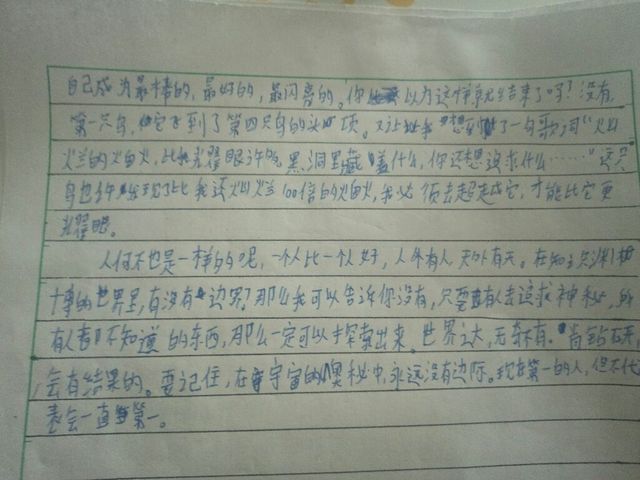 自己成为最棒的,最好的,最闪亮的。你以为这样就结束了吗?没有,
第一只鸟,它飞到了第四只鸟的头顶。又让我想到了一句歌词"火山
火兰的火白火,比耀眼许的,黑洞里藏着什么,你还想追求什么……"这只
鸟也许发现了比我还火山火兰100倍的火白火,我必须去超走成它,才能比它更
耀眼。
人何不也是一样的呢,一个人比一个人好,人外有人天外有天。在知
博的世界里,有没有边界?那么我可以告诉你没有,只要有人去追求神秘,所
有人都不知道的东西,那么一定可以探索出来。世界之大,无奇不有。肯钻石开,
会有结果的。要记住,在宇宙的奥秘中,永远没有边际。现在第一的人,但不代
表会一直第一。